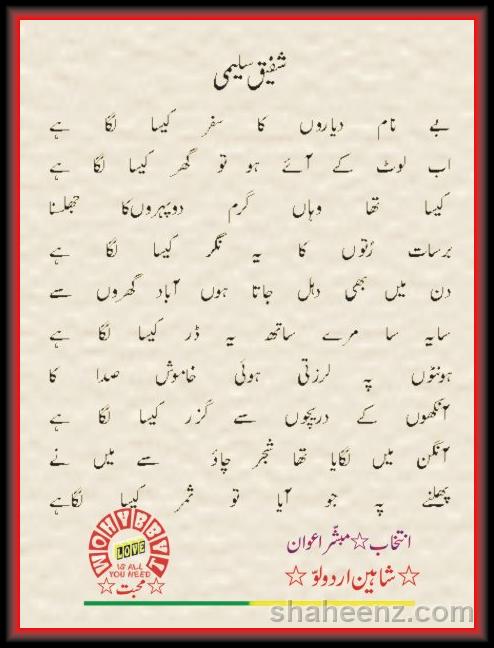 شفیق سلیمی
بے نام دیاروں کا سفر کیسا لگا ہے
اب لوٹ کے آئے ہو تو گھر کیسا لگا ہے
کیسا تھا وہاں گرم دوپہروں کا جھلسنا
برسات رُتوں کا یہ نگر کیسا لگا ہے
دن میں بھی دہل جاتا ہوں آباد گھروں سے
سایہ سا مرے ساتھ یہ ڈر کیسا لگا ہے
ہونٹوں پہ لرزتی ہوئی خاموش صدا کا
آنکھوں کے دریچوں سے گزر کیسا لگا ہے
آنگن میں لگایا تھا شجر چاؤ سے میں نے
پھلنے پہ جو آیا تو ثمر کیسا لگا ہے
انتخاب☆مبشّر اعوان
☆شاہین اردولوّ☆
WOHYBBVL
LOVE
IS ALL
YOU NEED
☆محبت☆
shaheenz.com